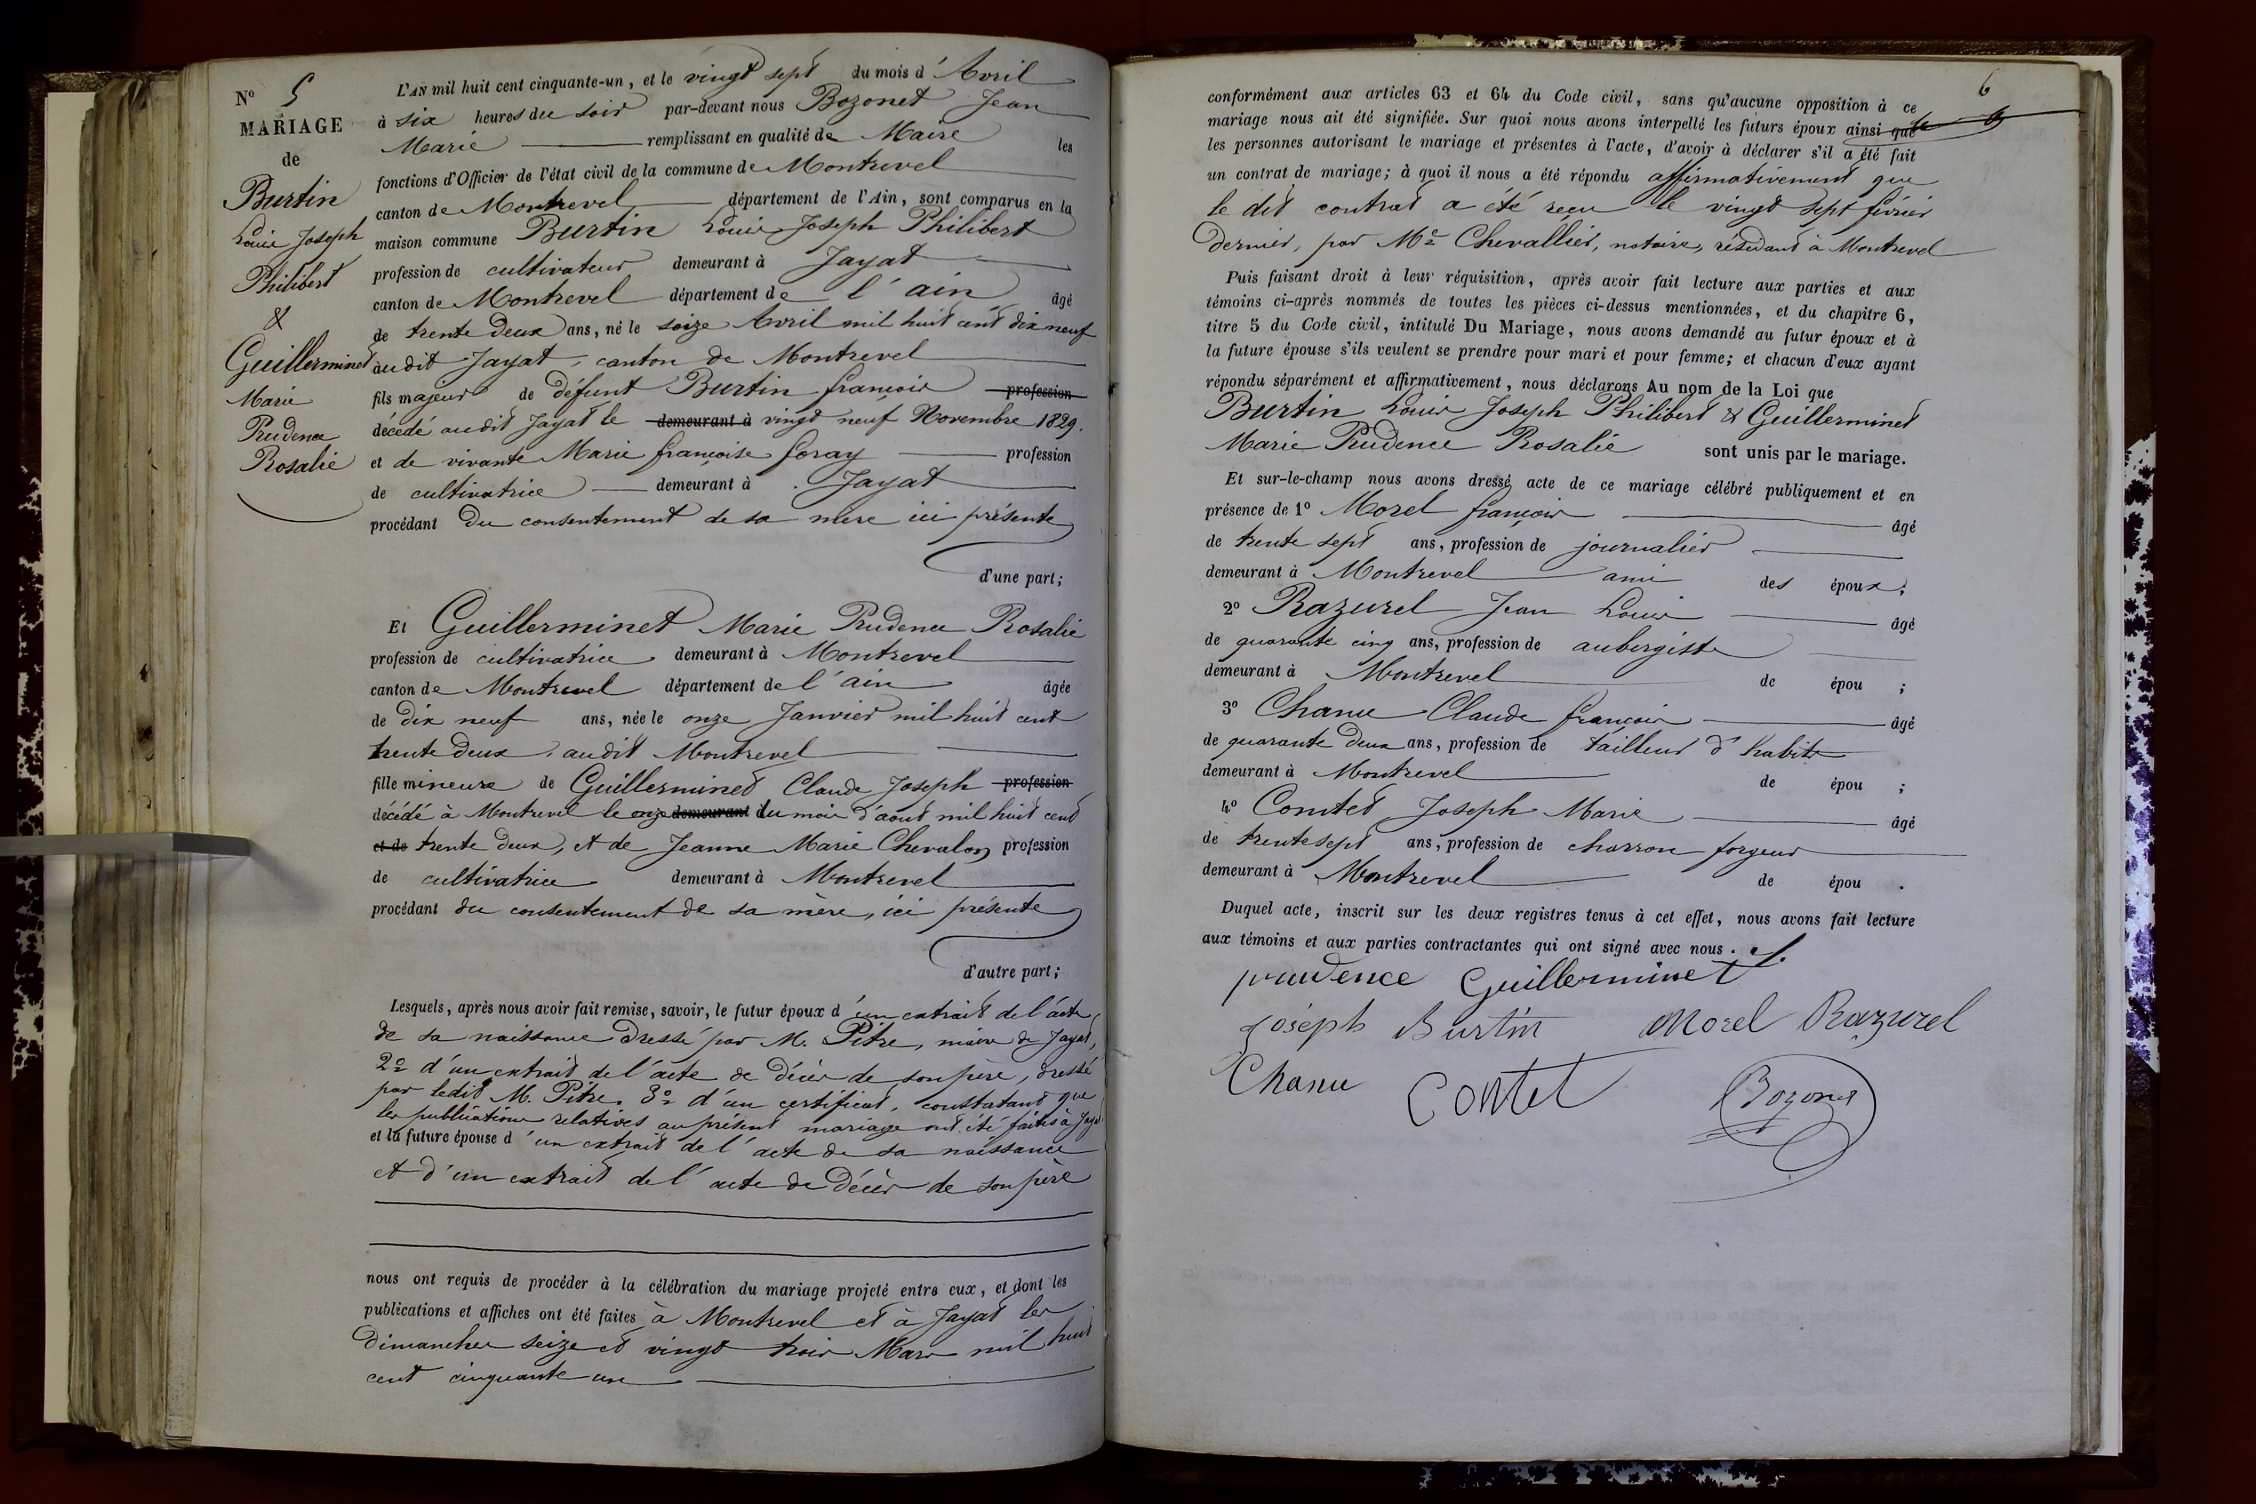 N° 5
MARIAGE
de
Burtin
Louis Joseph
Philibert
&
Guillerminet
Marie
Prudence
Rosalie
L'AN mil huit cent cinquante-un, et le vingt sept du mois d'Avril
à six heures du soir par-devant nous Bozonet Jean
Marie remplissant en qualité de Maire les
fonctions d'Officier de l'état civil de la commune de Montrevel
canton de Montrevel département de l'Ain, sont comparus en la
maison commune Burtin Louis Joseph Philibert
profession de cultivateur demeurant à Jayat
canton de Montrevel département de l'ain âgé
de trente deux ans, né le seize Avril mil huit cent dix neuf
audit Jayat, canton de Montrevel
fils majeur de défunt Burtin françois profession
décédé audit Jayat le demeurant à vingt neuf Novembre 1829.
et de vivante Marie françoise foray profession
de cultivatrice demeurant à Jayat
procédant du consentement de sa mère ici présente
d'une part;
Et Guillerminet Marie Prudence Rosalie
profession de cultivatrice demeurant à Montrevel
canton de Montrevel département de l'ain âgée
de dix neuf ans, née le onze Janvier mil huit cent
trente deux, audit Montrevel
fille mineure de Guillerminet Claude Joseph profession
décédé à Montrevel le onze demeurant du mois d'aout mil huit cent
et de trente deux, et de Jeanne Marie Chevalon profession
de cultivatrice demeurant à Montrevel
procédant du consentement de sa mère, ici présente
d'autre part;
Lesquels, après nous avoir fait remise, savoir, le futur époux d'un extrait de l'acte
de sa naissance dressé par M. Pitre, maire de Jayat,
2° d'un extrait de l'acte de décès de son père, dressé
par ledit M. Pitre. 3° d'un certificat, constatant que
les publications relatives au présent mariage ont été faites à Jayat
et la future épouse d'un extrait de l'acte de sa naissance
et d'un extrait de l'acte de décès de son père
nous ont requis de procéder à la célébration du mariage projeté entre eux, et dont les
publications et affiches ont été faites à Montrevel et à Jayat les
dimanches seize et vingt trois Mars mil huit
cent cinquante un
6
conformément aux articles 63 et 64 du Code civil, sans qu'aucune opposition à ce
mariage nous ait été signifiée. Sur quoi nous avons interpellé les futurs époux ainsi que
les personnes autorisant le mariage et présentes à l'acte, d'avoir à déclarer s'il a été fait
un contrat de mariage; à quoi il nous a été répondu affirmativement que
le dit contrat a été reçu le vingt sept février
dernier, par Me Chevallier, notaire, résidant à Montrevel
Puis faisant droit à leur réquisition, après avoir fait lecture aux parties et aux
témoins ci-après nommés de toutes les pièces ci-dessus mentionnées, et du chapitre 6,
titre 5 du Code civil, intitulé Du Mariage, nous avons demandé au futur époux et à
la future épouse s'ils veulent se prendre pour mari et pour femme; et chacun d'eux ayant
répondu séparément et affirmativement, nous déclarons Au nom de la Loi que
Burtin Louis Joseph Philibert & Guillerminet
Marie Prudence Rosalie sont unis par le mariage.
Et sur-le-champ nous avons dressé acte de ce mariage célébré publiquement et en
présence de 1° Morel françois âgé
de trente sept ans, profession de journalier
demeurant à Montrevel ami des époux;
2° Razurel Jean Louis âgé
de quarante cinq ans, profession de aubergiste
demeurant à Montrevel de épou ;
3° Chanu Claude françois âgé
de quarante deux ans, profession de tailleur d'habits
demeurant à Montrevel de épou ;
4° Comtet Joseph Marie âgé
de trente sept ans, profession de charron forgeur
demeurant à Montrevel de épou .
Duquel acte, inscrit sur les deux registres tenus à cet effet, nous avons fait lecture
aux témoins et aux parties contractantes qui ont signé avec nous.
prudence Guillerminet
joseph Burtin Morel Razurel
Chanu Contet Bozonet